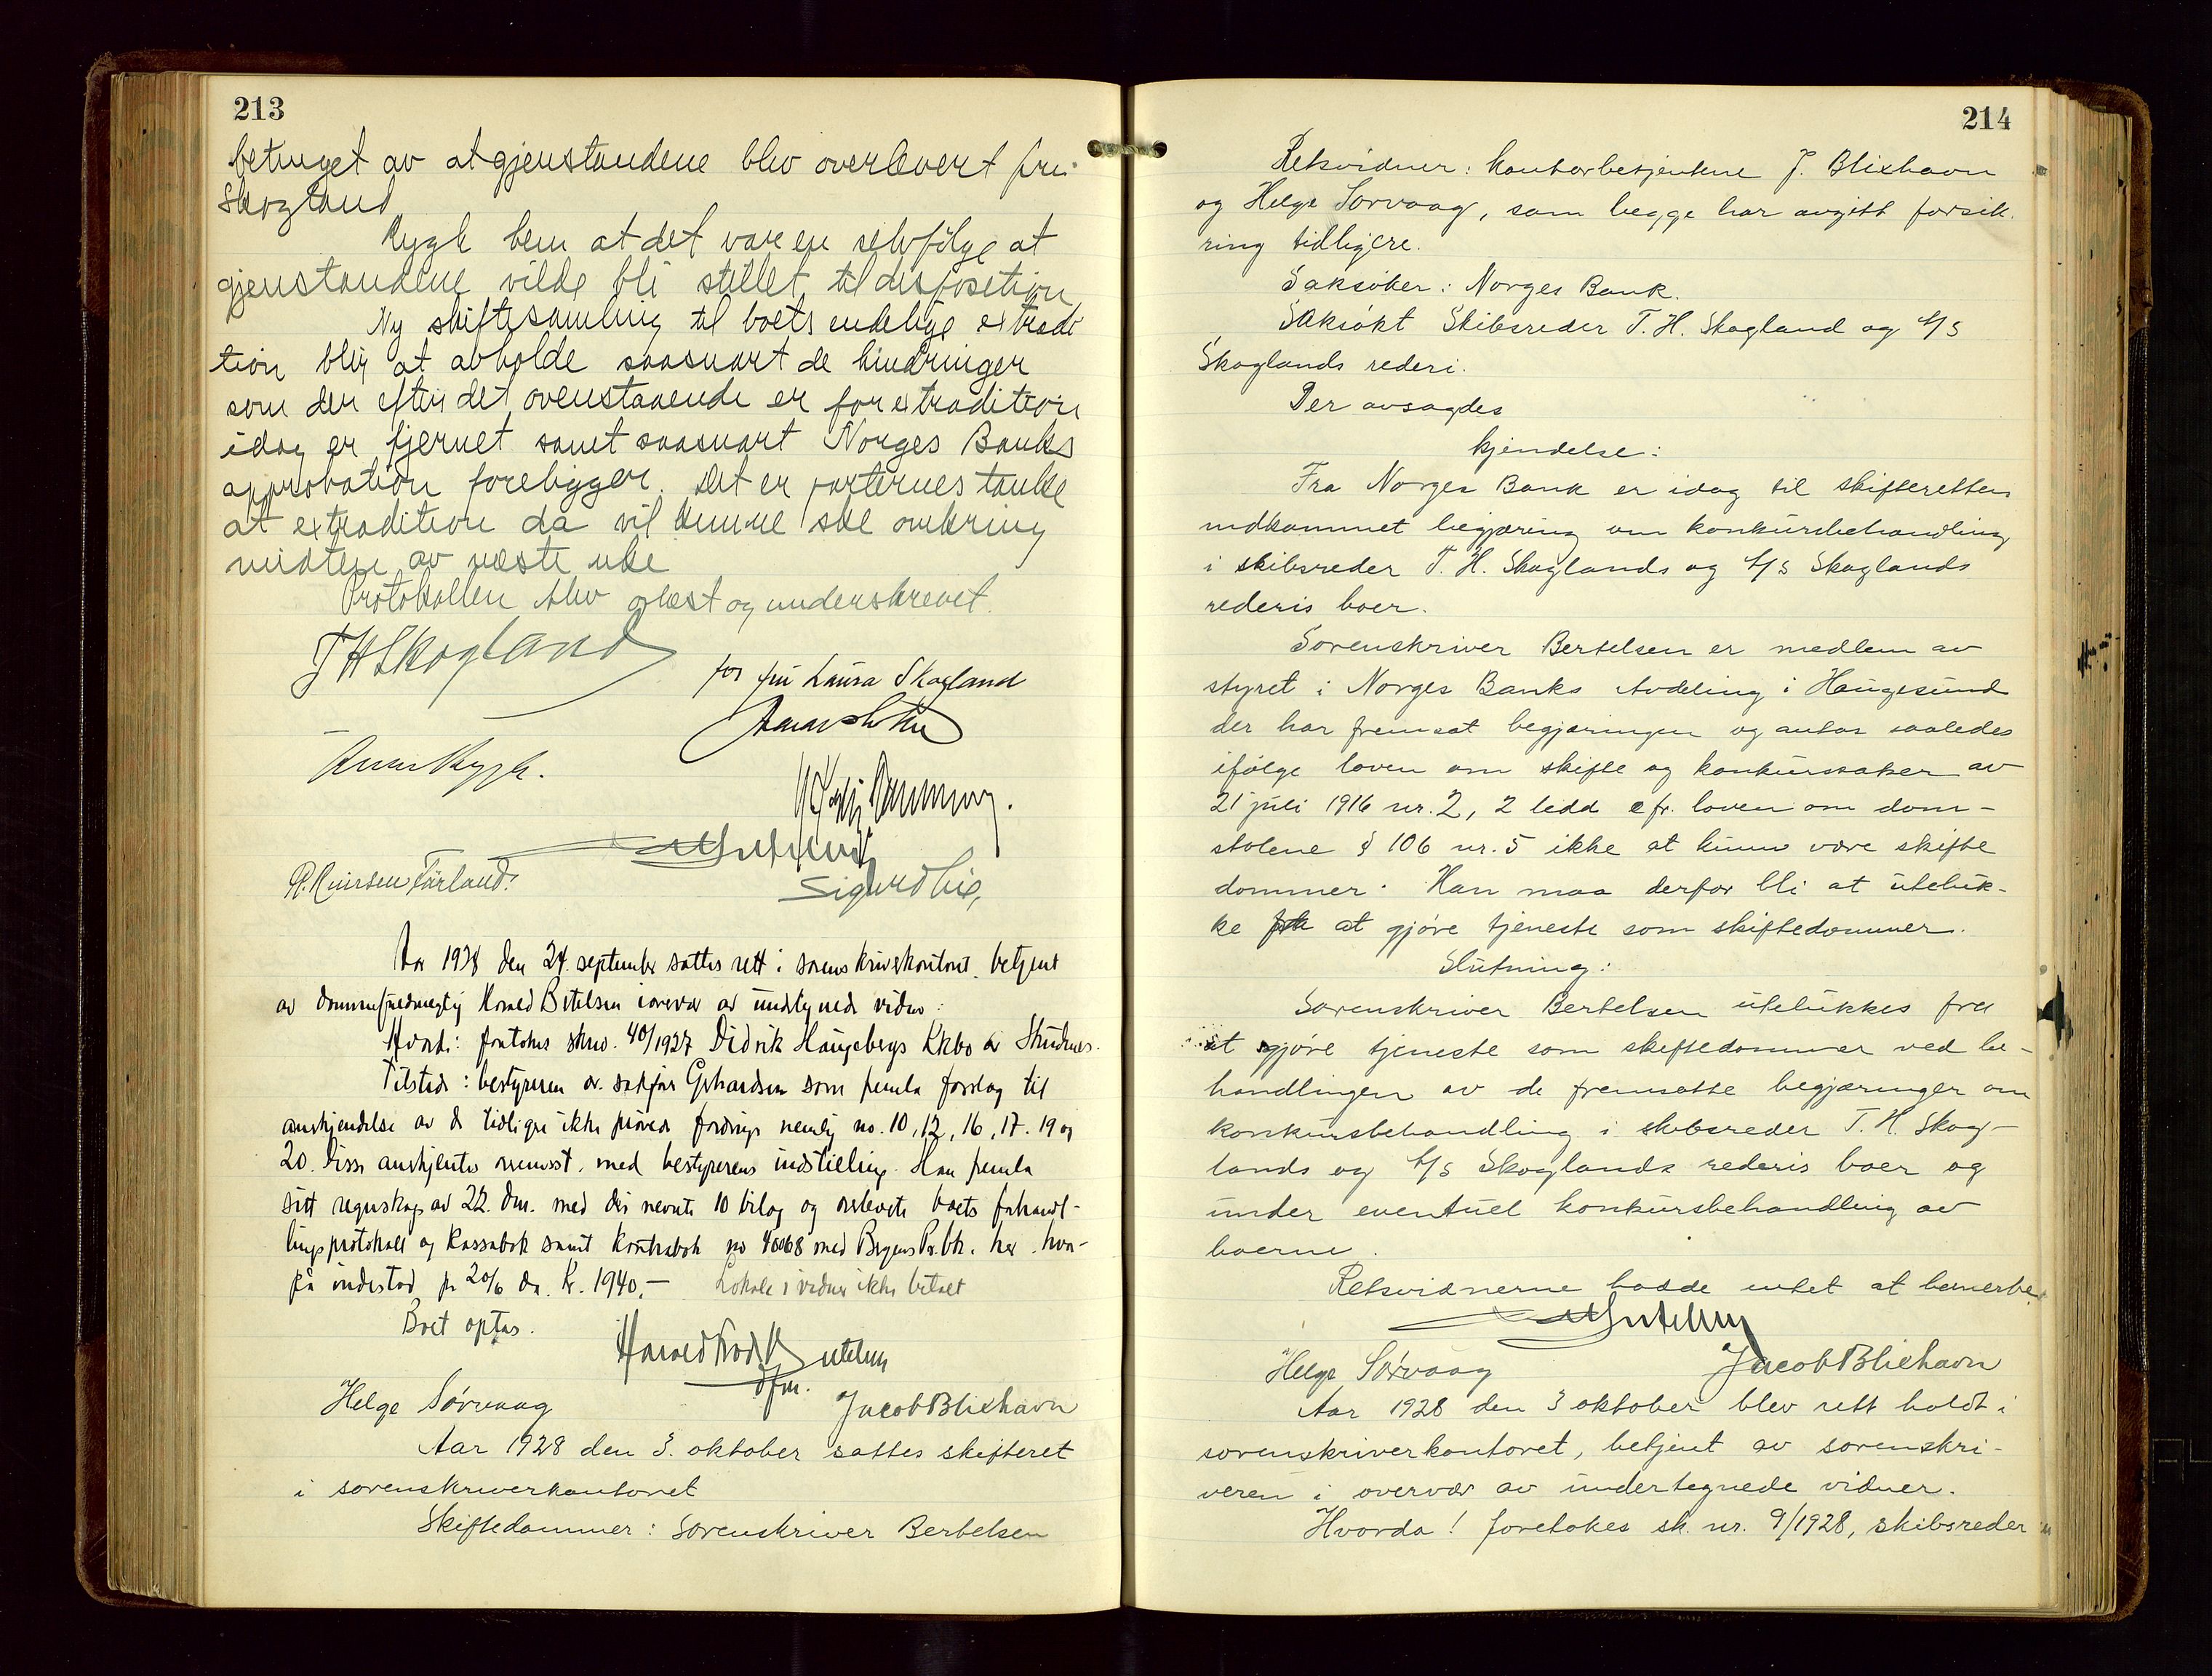 213
betinget av at gjenstandene blev overlevert fru
Skogland
Rygh bem at det var en selvfölge at
gjenstandene vilde bli stillet til disposition
Ny skiftesamling til boets endelige extradi
tion blir at avholde saasnart de hindringer
som der efter det ovenstaaende er for extradition
idag er fjernet samt saasnart Norges Banks
approbation foreligger. Det er parternes tanke
at extradition da vil kunne ske omkring
midten av næste uke
Protokollen blev oplæst og underskrevet.
T H Skogland
for fru Laura Skogland
R. Knirsen Førland.
Sigurd Lie,
Aar 1928 den 24. september sattes rett i sorenskriverkontoret betjent
av dommerfuldmegtig Harald Bertelsen i overvær av undertegnede vidner:
Hvorda: foretokes skno. 40/1927 Didrik Haugebergs kkbo av Skudnes.
Tilstede: bestyreren o. sakfører Gerhardsen som fremla forslag til
anerkjendelse av de tidligere ikke prövede fordringer nemlig no. 10, 12, 16, 17. 19 og
20. Disse anerkjentes overensst. med bestyrerens indstilling. Han fremla
sitt regnskap av 22. dm. med deri nevnte 10 bilag og overleverte boets forhand-
lingsprotokoll og kassabok samt kontrabok no 40068 med Bergens Pr.bk. her hvor-
på indestod pr 20/6 da. kr. 1940.- Lokale i vidner ikke betalt
Boet optas.
Harald Bertelsen
dfm.
Helge Sørvaag
Jacob Blixhavn
Aar 1928 den 3. oktober sattes skifteret
i sorenskriverkontoret
Skiftedommer: Sorenskriver Bertelsen
214
Retsvidner: kontorbetjentene J. Blixhavn
og Helge Sorvaag, som begge har avgitt forsik-
ring tidligere.
Saksöker: Norges Bank.
Saksökt Skibsreder T. H. Skogland og A/S
Skoglands rederi.
Der avsagdes
kjendelse:
Fra Norges Bank er idag til skifteretten
indkommet begjæring om konkursbehandling
i skibsreder T. H. Skoglands og A/S Skoglands
rederis boer.
Sorenskriver Bertelsen er medlem av
styret i Norges Banks Avdeling i Haugesund
der har fremsat begjæringen og antas saaledes
ifølge loven om skifte og konkurssaker av
21 juli 1916 nr. 2, 2 ledd cfr. loven om dom-
stolene § 106 nr. 5 ikke at kunne være skifte
dommer. Han maa derfor bli at uteluk-
ke at gjöre tjeneste som skiftedommer.
Slutning:
Sorenskriver Bertelsen utelukkes fra
at gjöre tjeneste som skiftedommer ved be-
handlingen av de fremsatte begjæringer om
konkursbehandling i skibsreder T. H. Skog-
lands og A/S Skoglands rederis boer og
under eventuel konkursbehandling av
boerne.
Retsvidnerne hadde intet at bemerke.
Helge Sørvaag
Jacob Blixhavn
Aar 1928 den 3 oktober blev rett holdt i
sorenskriverkontoret, betjent av sorenskri-
veren i overvær av undertegnede vidner.
Hvorda! foretokes sk. nr. 9/1928, skibsreder